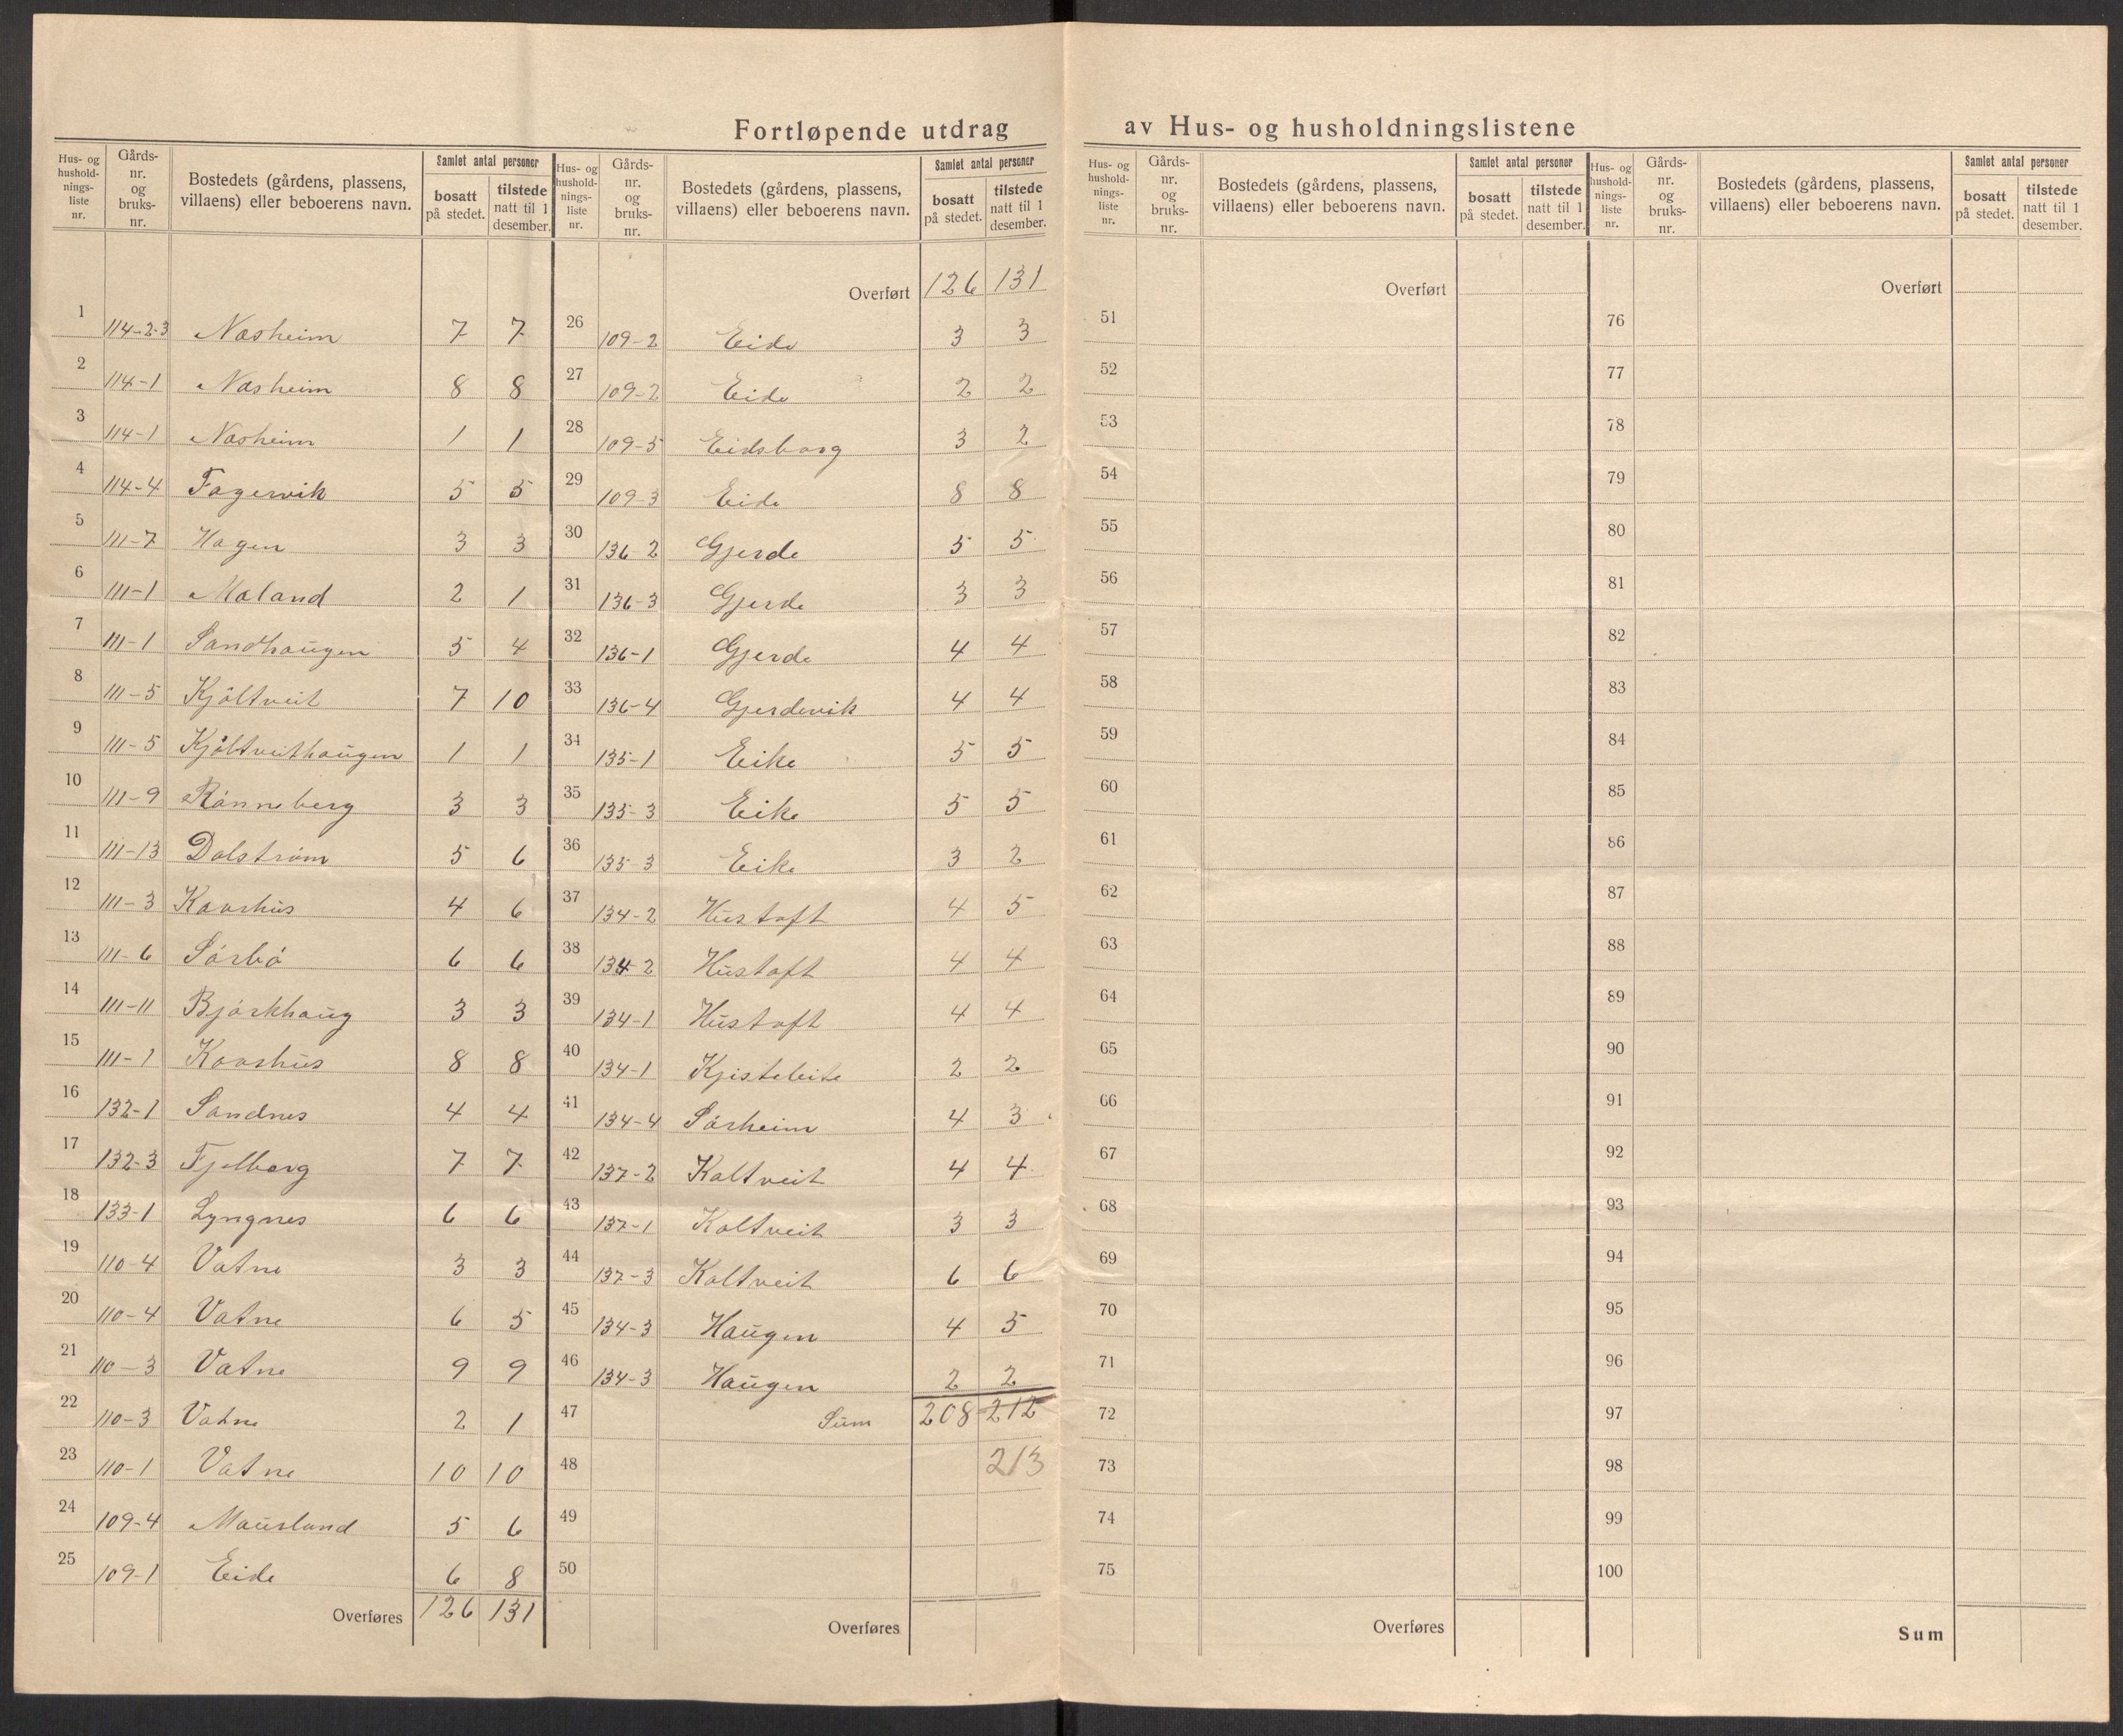 Fortløpende utdrag av Hus- og husholdningslistene
Hus- og hushold-nings-liste nr. | Gårds-nr. og bruks-nr. | Bostedets (gårdens, plassens, villaens) eller beboerens navn. | Samlet antal personer | bosatt på stedet. | tilstede natt til 1 desember.
1 114-2-3 Nasheim 7 7
2 114-1 Nasheim 8 8
3 114-1 Nasheim 1 1
4 114-4 Fagervik 5 5
5 111-7 Hagen 3 3
6 111-1 Maland 2 1
7 111-1 Sandhaugen 5 4
8 111-5 Kjöltveit 7 10
9 111-5 Kjöltveithaugen 1 1
10 111-9 Rönneberg 3 3
11 111-13 Dalström 5 6
12 111-3 Kaarhus 4 6
13 111-6 Sörbö 6 6
14 111-11 Björkhaug 3 3
15 111-1 Kaarhus 8 8
16 132-1 Sandnes 4 4
17 132-3 Fjelbarg 7 7
18 133-1 Lyngnes 6 6
19 110-4 Vatne 3 3
20 110-4 Vatne 6 5
21 110-3 Vatne 9 9
22 110-3 Vatne 2 1
23 110-1 Vatne 10 10
24 109-4 Mausland 5 6
25 109-1 Eide 6 8
Overføres 126 131
Hus- og hushold-nings-liste nr. | Gårds-nr. og bruks-nr. | Bostedets (gårdens, plassens, villaens) eller beboerens navn. | Samlet antal personer | bosatt på stedet. | tilstede natt til 1 desember.
Overført 126 131
26 109-2 Eide 3 3
27 109-2 Eide 2 2
28 109-5 Eidsborg 3 2
29 109-3 Eide 8 8
30 136-2 Gjerde 5 5
31 136-3 Gjerde 3 3
32 136-1 Gjerde 4 4
33 136-4 Gjerdevik 4 4
34 135-1 Eike 5 5
35 135-3 Eike 5 5
36 135-3 Eike 3 2
37 134-2 Hustoft 4 5
38 134-2 Hustoft 4 4
39 134-1 Hustoft 4 4
40 134-1 Kjisteleite 2 2
41 134-4 Sörheim 4 3
42 137-2 Kaltveit 4 4
43 137-1 Kaltveit 3 3
44 137-3 Kaltveit 6 6
45 134-3 Haugen 4 5
46 134-3 Haugen 2 2
47 Sum 208 212
48 213
49
50
Overføres
Hus- og hushold-nings-liste nr. | Gårds-nr. og bruks-nr. | Bostedets (gårdens, plassens, villaens) eller beboerens navn. | Samlet antal personer | bosatt på stedet. | tilstede natt til 1 desember.
Overført
51
52
53
54
55
56
57
58
59
60
61
62
63
64
65
66
67
68
69
70
71
72
73
74
75
Overføres
Hus- og hushold-nings-liste nr. | Gårds-nr. og bruks-nr. | Bostedets (gårdens, plassens, villaens) eller beboerens navn. | Samlet antal personer | bosatt på stedet. | tilstede natt til 1 desember.
Overført
76
77
78
79
80
81
82
83
84
85
86
87
88
89
90
91
92
93
94
95
96
97
98
99
100
Sum